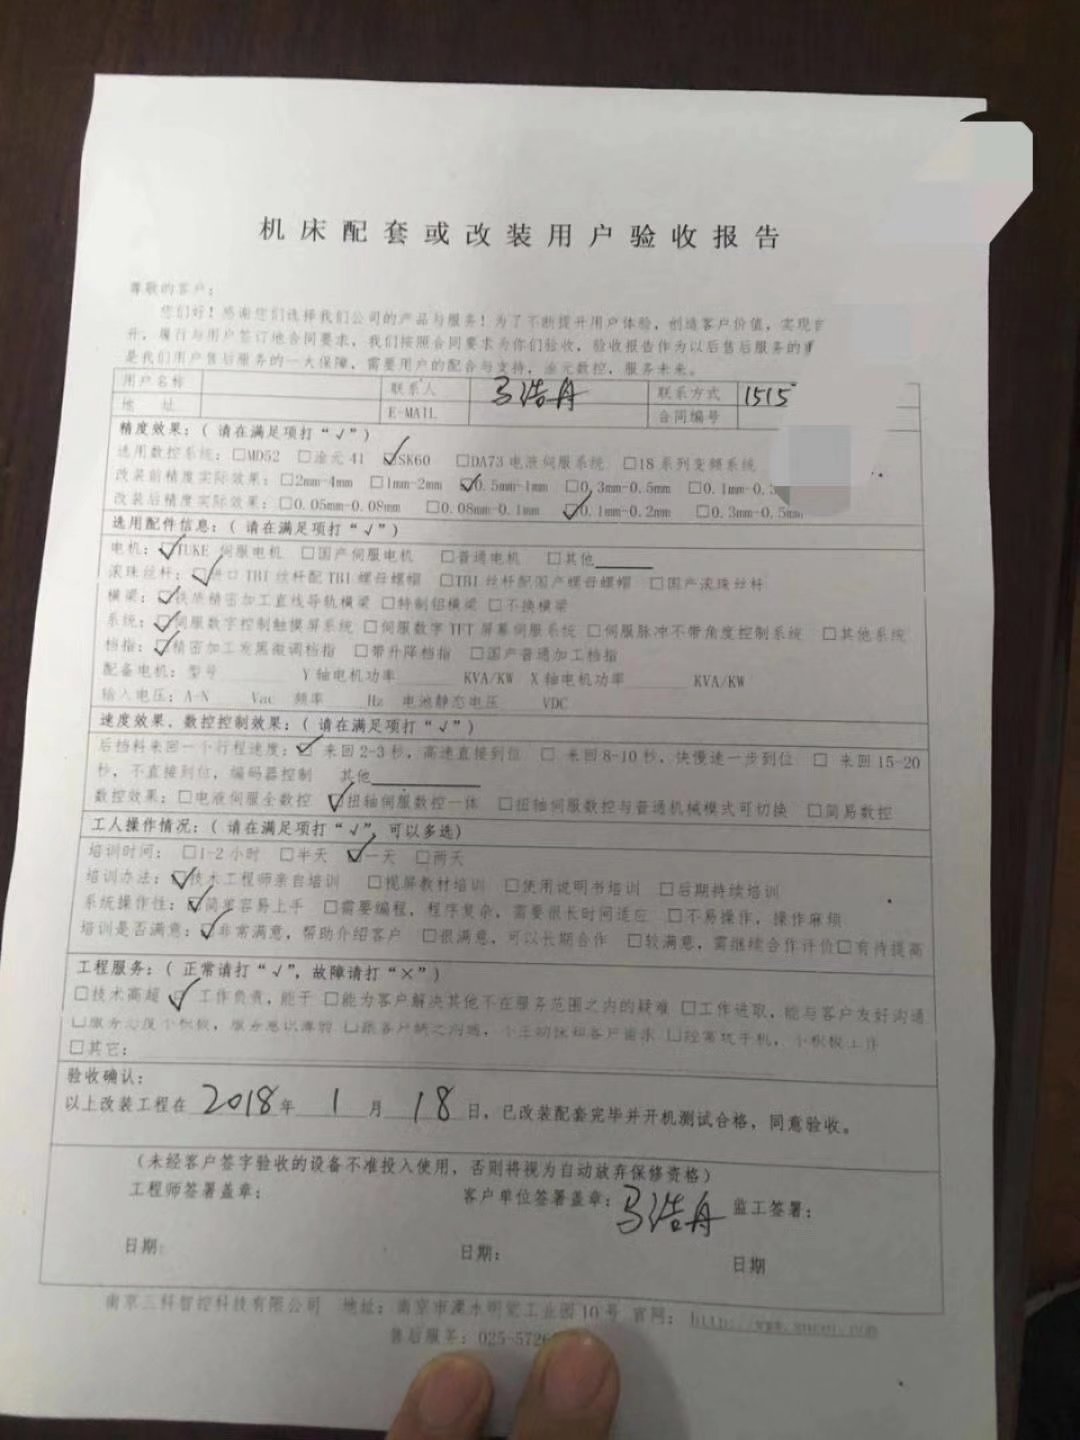 机床配套或改装用户验收报告
尊敬的客户：
您们好！感谢您们选择我们公司的产品与服务！为了不断提升用户体验，创造客户价值，实现
升，履行与用户签订地合同要求，我们按照合同要求为你们验收，验收报告作为以后售后服务的
是我们用户售后服务的一大保障，需要用户的配合与支持，淦元数控，服务未来。
用户名称 联系人 马浩舟 联系方式 1515
地 址 E-MAIL 合同编号
精度效果：（请在满足项打“√”）
选用数控系统：□MD52 □淦元41 ☑SK60 □DA73电液伺服系统 □18系列变频系统
改装前精度实际效果：□2mm-4mm □1mm-2mm ☑0.5mm-1mm □0.3mm-0.5mm □0.1mm-0.
改装后精度实际效果：□0.05mm-0.08mm □0.08mm-0.1mm ☑0.1mm-0.2mm □0.3mm-0.5mm
选用配件信息：（请在满足项打“√”）
电机：☑TUKE 伺服电机 □国产伺服电机 □普通电机 □其他
滚珠丝杆：☑进口TBI丝杆配TBI螺母螺帽 □TBI丝杆配国产螺母螺帽 □国产滚珠丝杆
横梁：☑铁质精密加工直线导轨横梁 □特制铝横梁 □不换横梁
系统：☑伺服数字控制触摸屏系统 □伺服数字TFT屏幕伺服系统 □伺服脉冲不带角度控制系统 □其他系统
档指：☑精密加工发黑微调档指 □带升降档指 □国产普通加工档指
配备电机：型号 Y轴电机功率 KVA/KW X轴电机功率 KVA/KW
输入电压：A-N Vac 频率 Hz 电池静态电压 VDC
速度效果、数控控制效果：（请在满足项打“√”）
后挡料来回一个行程速度：☑来回2-3秒，高速直接到位 □ 来回8-10秒，快慢速一步到位 □ 来回15-20
秒，不直接到位，编码器控制 其他
数控效果：□电液伺服全数控 ☑扭轴伺服数控一体 □扭轴伺服数控与普通机械模式可切换 □简易数控
工人操作情况：（请在满足项打“√”，可以多选）
培训时间：□1-2小时 □半天 ☑一天 □两天
培训办法：☑技术工程师亲自培训 □视屏教材培训 □使用说明书培训 □后期持续培训
系统操作性：☑简单容易上手 □需要编程，程序复杂，需要很长时间适应 □不易操作，操作麻烦
培训是否满意：☑非常满意，帮助介绍客户 □很满意，可以长期合作 □较满意，需继续合作评价□有待提高
工程服务：（正常请打“√”，故障请打“×”）
□技术高超 ☑工作负责，能干 □能为客户解决其他不在服务范围之内的疑难 □工作进取，能与客户友好沟通
□其它：
验收确认：
以上改装工程在 2018 年 1 月 18 日，已改装配套完毕并开机测试合格，同意验收。
（未经客户签字验收的设备不准投入使用，否则将视为自动放弃保修资格）
工程师签署盖章： 客户单位签署盖章：马浩舟 监工签署：
日期： 日期： 日期
南京三科智控科技有限公司 地址：南京市溧水明觉工业园10号 官网：
售后服务：025-572